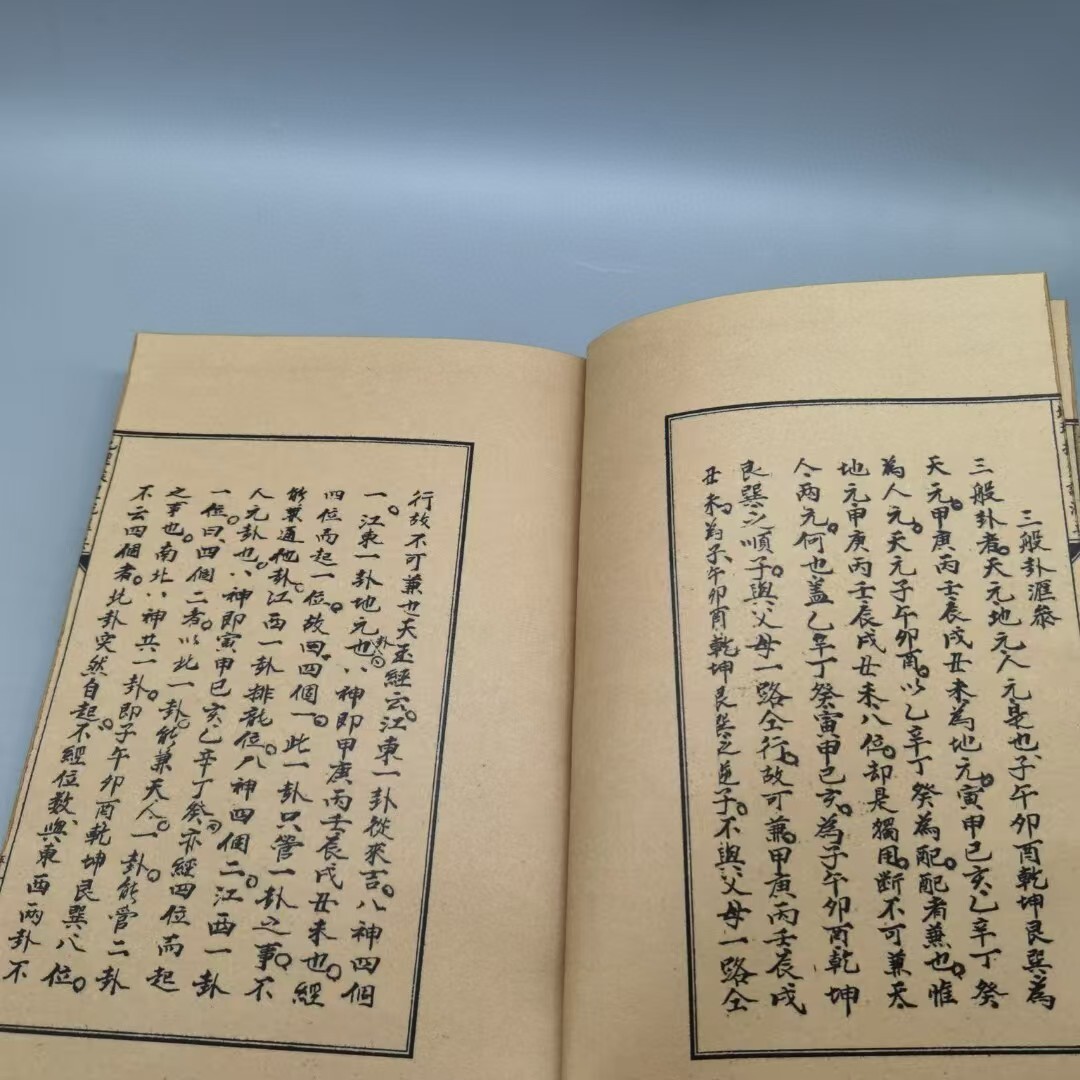 三般卦滙叅
三般卦者。天元地元人元是也。子午卯酉乾坤艮巽為
天元。甲庚丙壬辰戌丑未為地元。寅甲巳亥。乙辛丁癸
為人元。天元子午卯酉。以乙辛丁癸為配。配者兼也。惟
地元甲庚丙壬辰戌丑未八位。却是獨用。断不可兼天
人兩元。何也。蓋乙辛丁癸寅甲巳亥。為子午卯酉乾坤
艮巽之順子。與父母一路仝行。故可兼。甲庚丙壬辰戌
丑未。為子午卯酉乾坤艮巽之逆子。不與父母一路仝
行。故不可兼也。天玉經云。江東一卦從來吉。八神四個
一。江東一卦地元也。八神即甲庚丙壬辰戌丑未也。經
四位而起一位。故曰四個一。此一卦只管一卦之事。不
能兼通他卦。江西一卦排龍位。八神四個二。江西一卦
人元卦也。八神即寅甲巳亥。乙辛丁癸。亦經四位而起
一位。曰四個二者。以此一卦。能兼天人。一卦能管二卦
之事也。南北八神共一卦。即子午卯酉乾坤艮巽八位。
不云四個者。此卦突然自起。不經位数。與東西两卦不